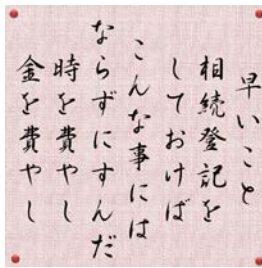 早いこと
相続登記を
しておけば
こんな事には
ならずにすんだ
時を費やし
金を費やし